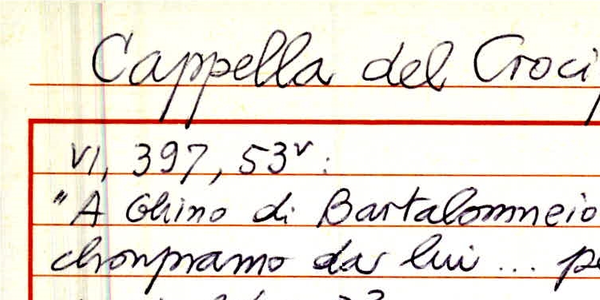 Cappella del Croci
VI, 397, 53v:
"A Ghino di Bartalommeio
chonpramo da lui ... pe